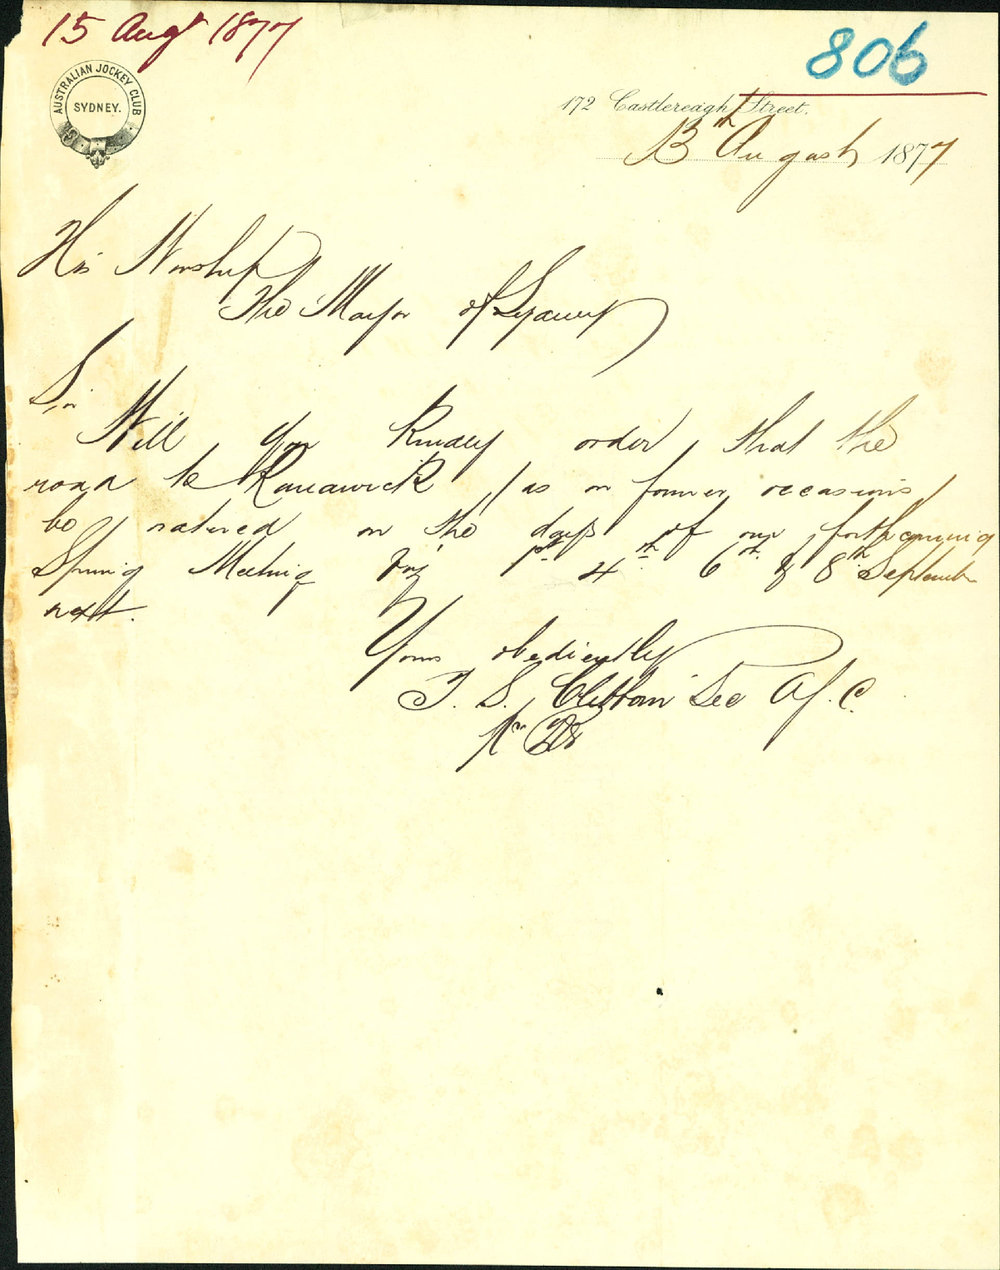 15 Augt 1877
806
AUSTRALIAN JOCKEY CLUB
SYDNEY.
172 Castlereagh Street.
13th August 1877
His Worship
The Mayor of Sydney
Sir
Will you kindly order that the
road to Randwick, as on former occasions,
be watered on the days of our forthcoming
Spring Meeting viz 1st 4th 6th & 8th September
next.
Yours obediently
T. S. Clibborn Sec A.J.C.